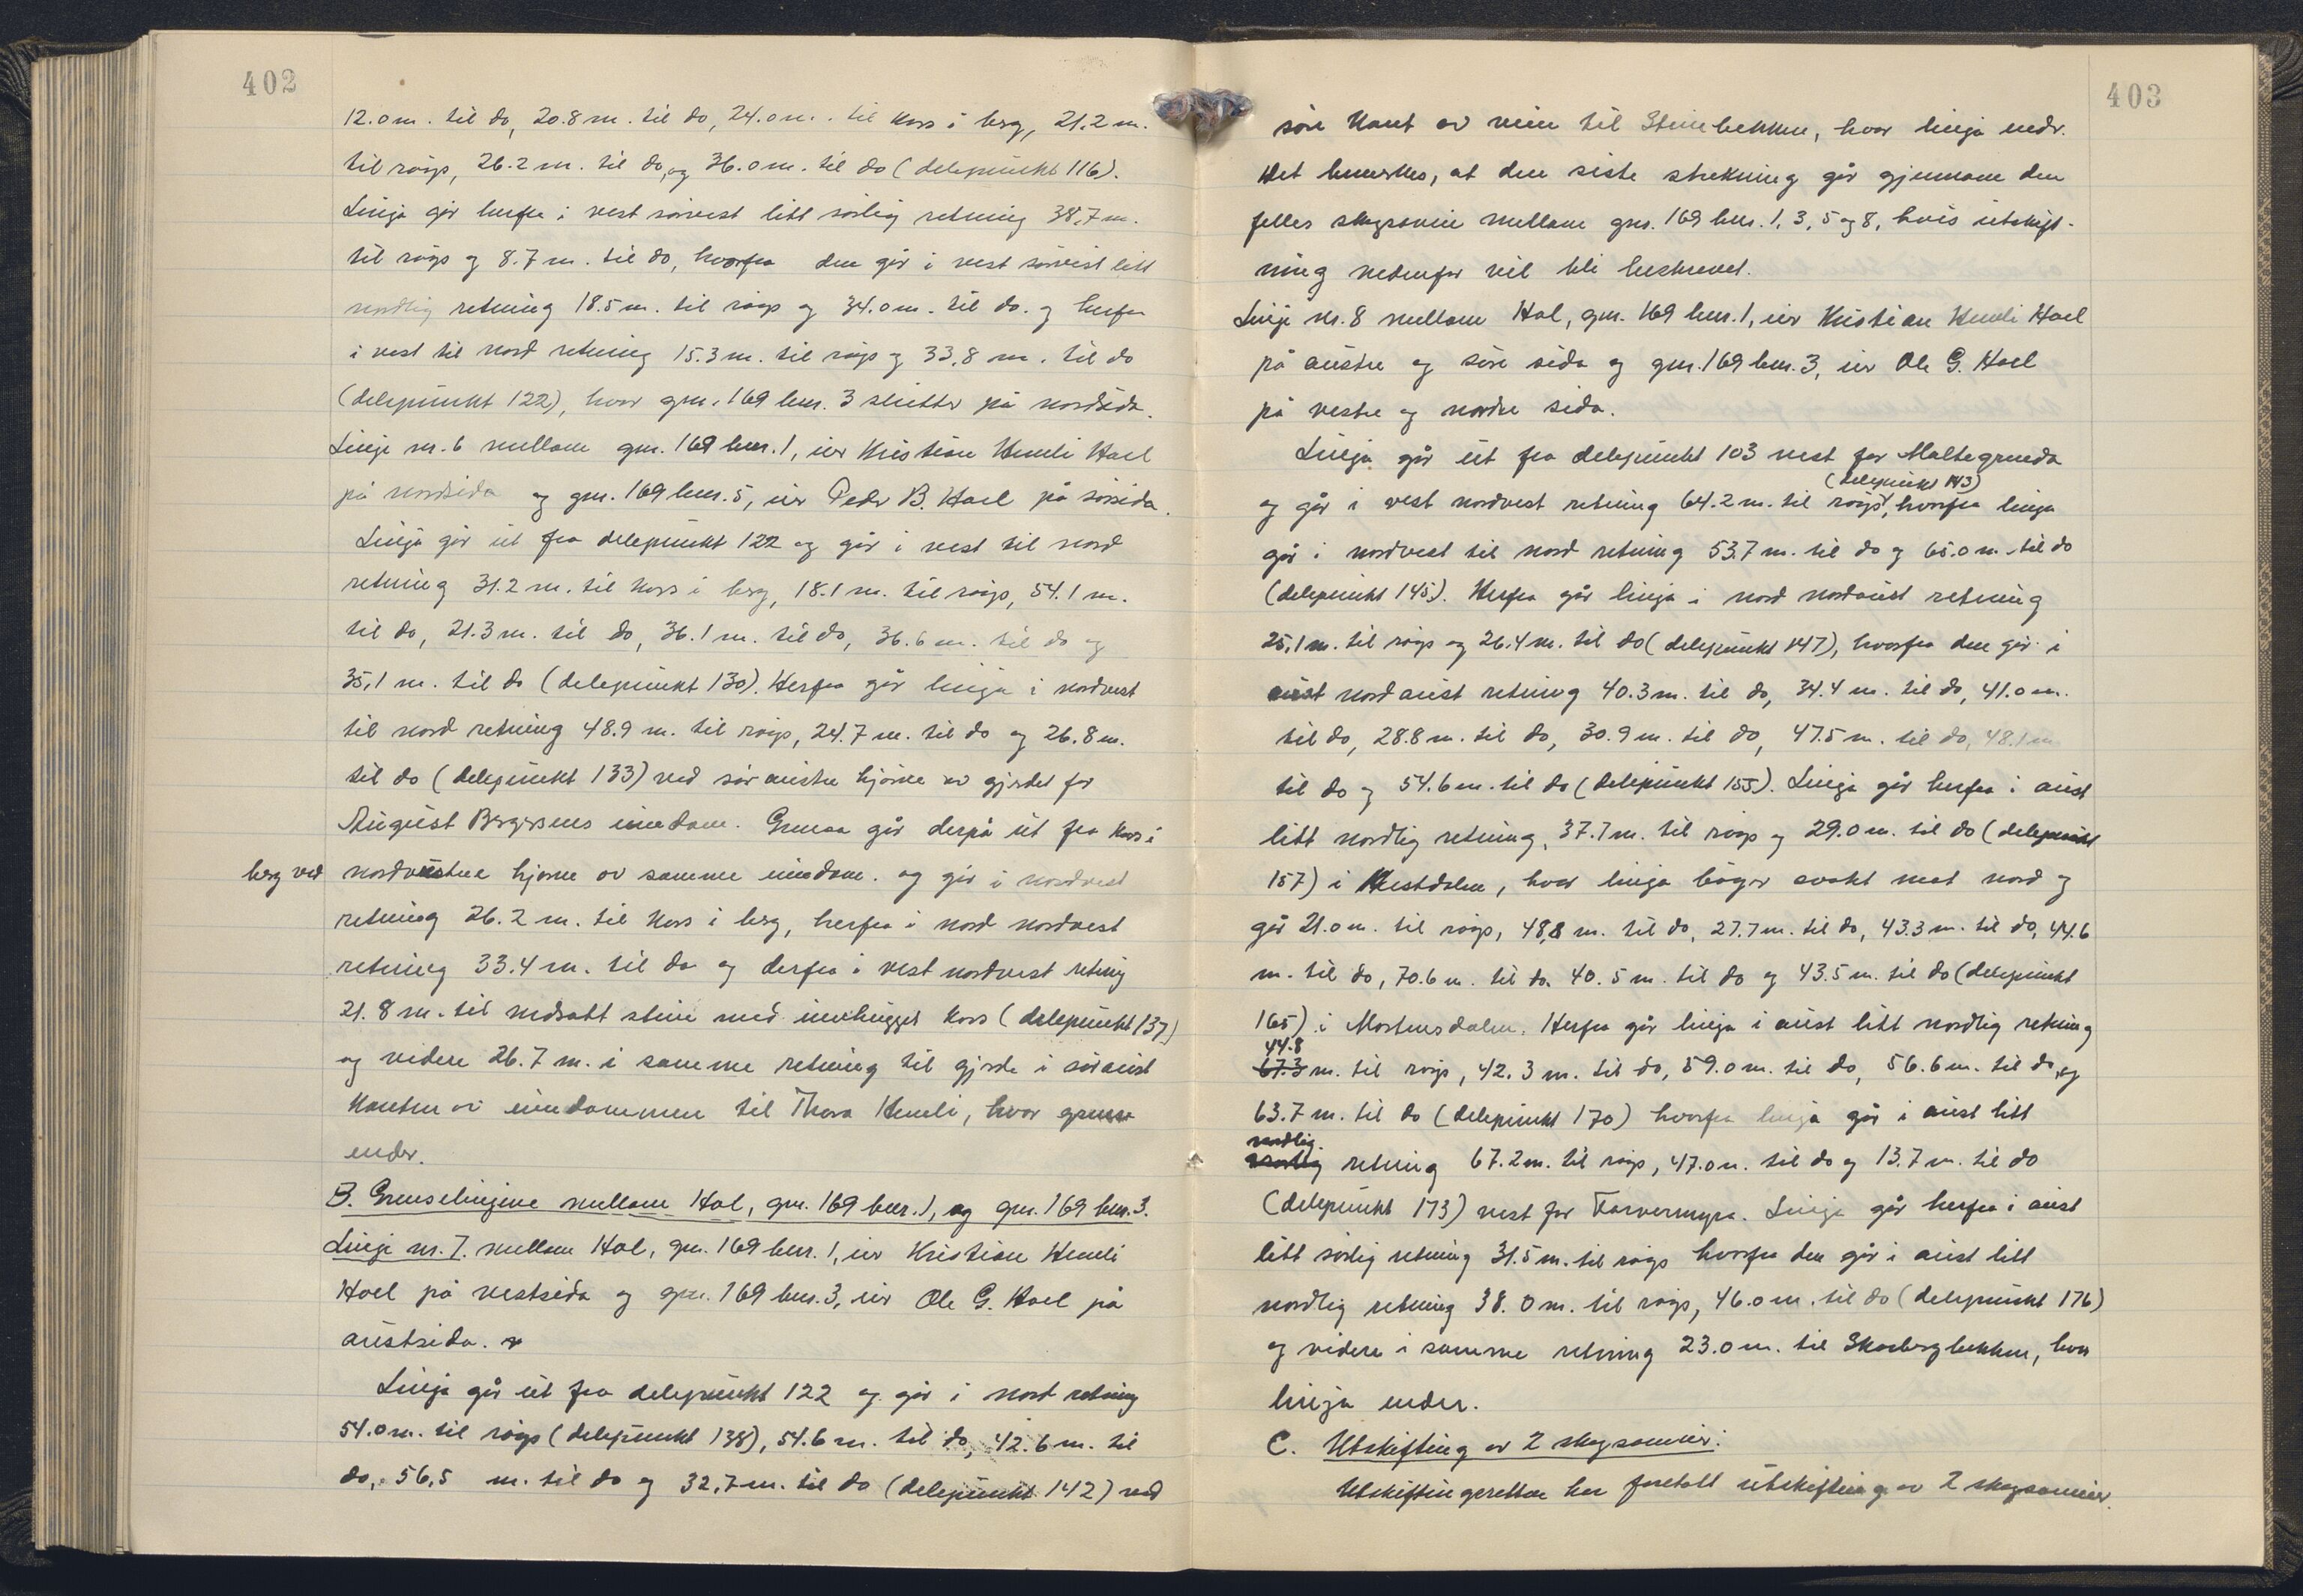 402
12.0 m. til do, 20.8 m. til do, 24.0 m. til kors i berg, 21.2 m.
til röys, 26.2 m. til do, og 36.0 m. til do (delepunkt 116).
Linja går herfra i vest sørvest litt sørlig retning 38,7 m.
til röys og 8.7 m. til do, hvorfra den går i vest sørvest litt
nordlig retning 18.5 m. til röys og 34.0 m. til do. og herfra
i vest til nord retning 15.3 m. til röys og 33,8 m. til do
(delepunkt 122), hvor gnr. 169 bnr. 3 slutter på nordsida.
Linje nr. 6 mellom gnr. 169 bnr. 1, eier Kristian Hemli Hoel
på nordsida og gnr. 169 bnr. 5, eier Peder B. Hoel på sørsida.
Linja går ut fra delepunkt 122 og går i vest til nord
retning 31.2 m. til kors i berg, 18.1 m. til röys, 54.1 m.
til do, 21.3 m. til do, 36.1 m. til do, 36.6 m. til do og
35,1 m. til do (delepunkt 130). Herfra går linja i nordvest
til nord retning 48.9 m. til röys, 24.7 m. til do og 26.8 m.
til do (delepunkt 133) ved sør austre hjørne av gjerdet for
August Bergersens eiendom. Grensa går derpå ut fra kors i
berg ved nordvestre hjørne av samme eiendom. og går i nordvest
retning 26.2 m. til kors i berg, herfra i nord nordvest
retning 33.4 m. til do og derfra i vest nordvest retning
21.8 m. til nedsatt stein med innhugget kors (delepunkt 137)
og videre 26.7 m. i samme retning til gjerde i søraust
kanten av eiendommen til Thora Hemli, hvor grensa
ender.
B. Grenselinjene mellom Hol, gnr. 169 bnr. 1, og gnr. 169 bnr. 3.
Linje nr. 7. mellom Hol, gnr. 169 bnr. 1, eier Kristian Hemli
Hoel på vestsida og gnr. 169 bnr. 3, eier Ole G. Hoel på
austsida.
Linja går ut fra delepunkt 122 og går i nord retning
54.0 m. til röys (delepunkt 138), 54.6 m. til do, 42.6 m. til
do, 56,5 m. til do og 32,7 m. til do (delepunkt 142) ved
403
søre kant av veien til Steinbekken, hvor linja ender.
Det bemerkes, at den siste strekning går gjennom den
felles skogsameie mellom gnr. 169 bnr. 1, 3, 5 og 8, hvis utskift-
ning nedenfor vil bli beskrevet.
Linje nr. 8 mellom Hol, gnr. 169 bnr. 1, eier Kristian Hemli Hoel
på austre og søre sida og gnr. 169 bnr. 3, eier Ole G. Hoel
på vestre og nordre sida.
Linja går ut fra delepunkt 103 vest for Moltegrunda
(delepunkt 143)
og går i vest nordvest retning 64.2 m. til röys, hvorfra linja
går i nordvest til nord retning 53.7 m. til do og 65.0 m. til do
(delepunkt 145). Herfra går linja i nord nordaust retning
25,1 m. til röys og 26.4 m. til do (delepunkt 147), hvorfra den går i
aust nordaust retning 40.3 m. til do, 34.4 m. til do, 41.0 m.
til do, 28.8 m. til do, 30.9 m. til do, 47.5 m. til do, 48.1 m
til do og 54.6 m. til do (delepunkt 155). Linja går herfra i aust
litt nordlig retning, 37.7 m. til röys og 29.0 m. til do (delepunkt
157) i Hestdalen, hvor linja bøger svakt mot nord og
går 21.0 m. til röys, 48,8 m. til do, 27.7 m. til do, 43.3 m. til do, 44.6
m. til do, 70.6 m. til do. 40.5 m. til do og 43.5 m. til do (delepunkt
165) i Mortensdalen. Herfra går linja i aust litt nordlig retning
44.8
67.3 m. til röys, 42.3 m. til do, 59.0 m. til do, 56.6 m. til do, og
63.7 m. til do (delepunkt 170) hvorfra linja går i aust litt
nordlig
retning 67.2 m. til röys, 47.0 m. til do og 13.7 m. til do
(delepunkt 173) vest for Tarvermyra. Linja går herfra i aust
litt sørlig retning 31.5 m. til röys hvorfra den går i aust litt
nordlig retning 38.0 m. til röys, 46.0 m. til do (delepunkt 176)
og videre i samme retning 23.0 m. til Skarbergbekken, hvor
linja ender.
C. Utskifting av 2 skogsameier.
Utskiftingsretten har foretatt utskifting av 2 skogsameier.